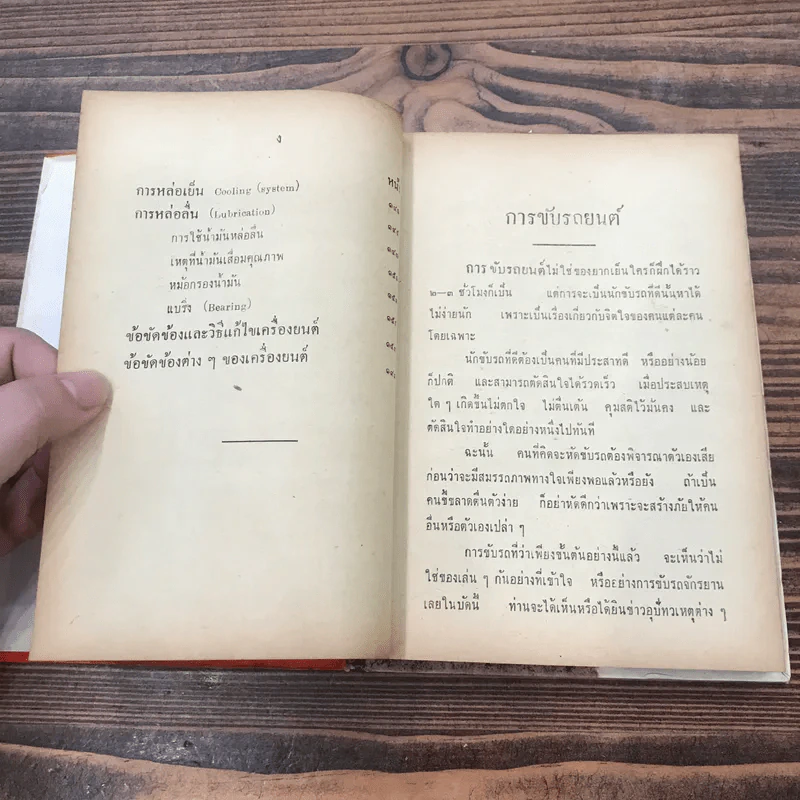 ง
การหล่อเย็น Cooling (system)
การหล่อลื่น (Lubrication)
การใช้น้ำมันหล่อลื่น
เหตุที่น้ำมันเสื่อมคุณภาพ
หม้อกรองน้ำมัน
แบริ่ง (Bearing)
ข้อขัดข้องและวิธีแก้ไขเครื่องยนต์
ข้อขัดข้องต่าง ๆ ของเครื่องยนต์
การขับรถยนต์
การ ขับรถยนต์ไม่ใช่ของยากเย็นใครก็ฝึกได้ราว
๒—๓ ชั่วโมงก็เป็น แต่การจะเป็นนักขับรถที่ดีนั้นหาได้
ไม่ง่ายนัก เพราะเป็นเรื่องเกี่ยวกับจิตใจของคนแต่ละคน
โดยเฉพาะ
นักขับรถที่ดีต้องเป็นคนที่มีประสาทดี หรืออย่างน้อย
ก็ปกติ และสามารถตัดสินใจได้รวดเร็ว เมื่อประสบเหตุ
ใด ๆ เกิดขึ้นไม่ตกใจ ไม่ตื่นเต้น คุมสติไว้มั่นคง และ
ตัดสินใจทำอย่างใดอย่างหนึ่งไปทันที
ฉะนั้น คนที่คิดจะหัดขับรถต้องพิจารณาตัวเองเสีย
ก่อนว่าจะมีสมรรถภาพทางใจเพียงพอแล้วหรือยัง ถ้าเป็น
คนขี้ขลาดตื่นตัวง่าย ก็อย่าหัดดีกว่าเพราะจะสร้างภัยให้คน
อื่นหรือตัวเองเปล่า ๆ
การขับรถที่ว่าเพียงขั้นต้นอย่างนี้แล้ว จะเห็นว่าไม่
ใช่ของเล่น ๆ กันอย่างที่เข้าใจ หรืออย่างการขับรถจักรยาน
เลยในบัดนี้ ท่านจะได้เห็นหรือได้ยินข่าวอุบัทวเหตุต่าง ๆ